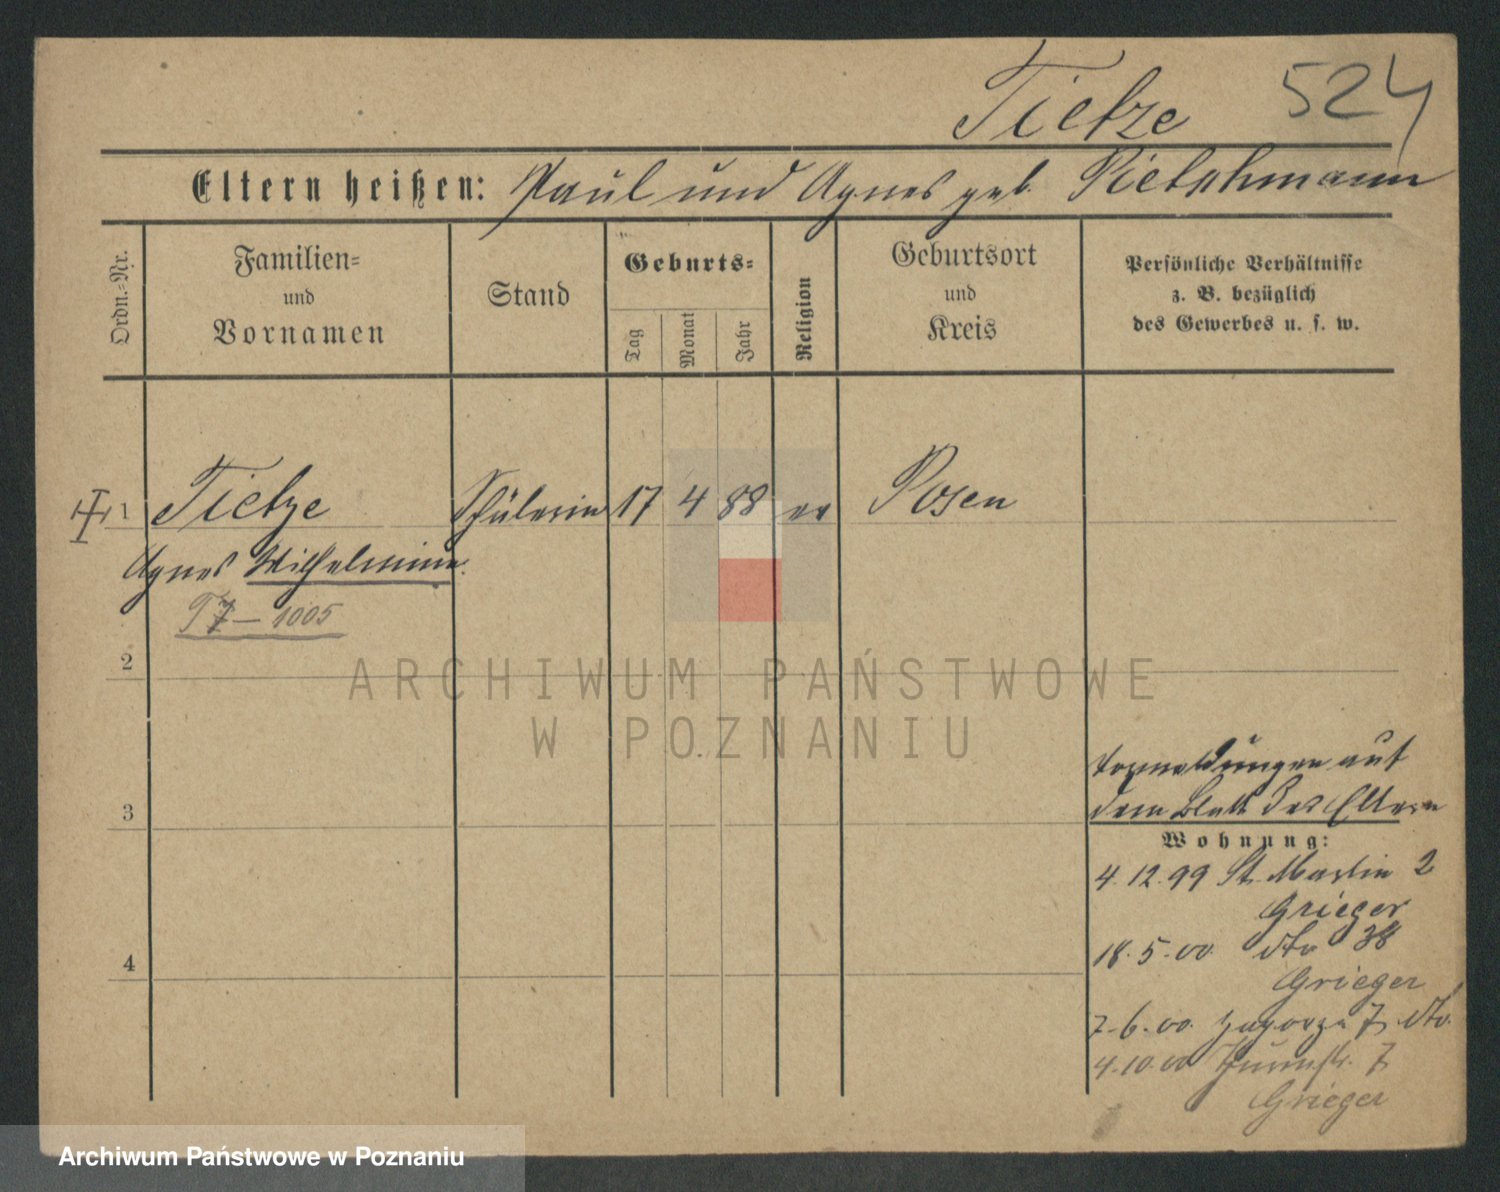 Tietze 524
Eltern heißen: Paul und Agnes geb. Pietschmann
Ordn.-Nr.
Familien-
und
Vornamen
Stand
Geburts-
Tag
Monat
Jahr
Religion
Geburtsort
und
Kreis
Persönliche Verhältnisse
z. B. bezüglich
des Gewerbes u. s. w.
1 Tietze Schülerin 17 4 88 ev Posen
Agnes Wilhelmine
T7 — 1005
2
ARCHIWUM PAŃSTWOWE
W POZNANIU
auf
3 dem Blatt der Eltern
Wohnung:
4.12.99 St. Martin 2
Grieger
18.5.00. dto 38
4
Grieger
7.6.00. Zagorze 7 dto.
4.10.00 7
Grieger
Archiwum Państwowe w Poznaniu